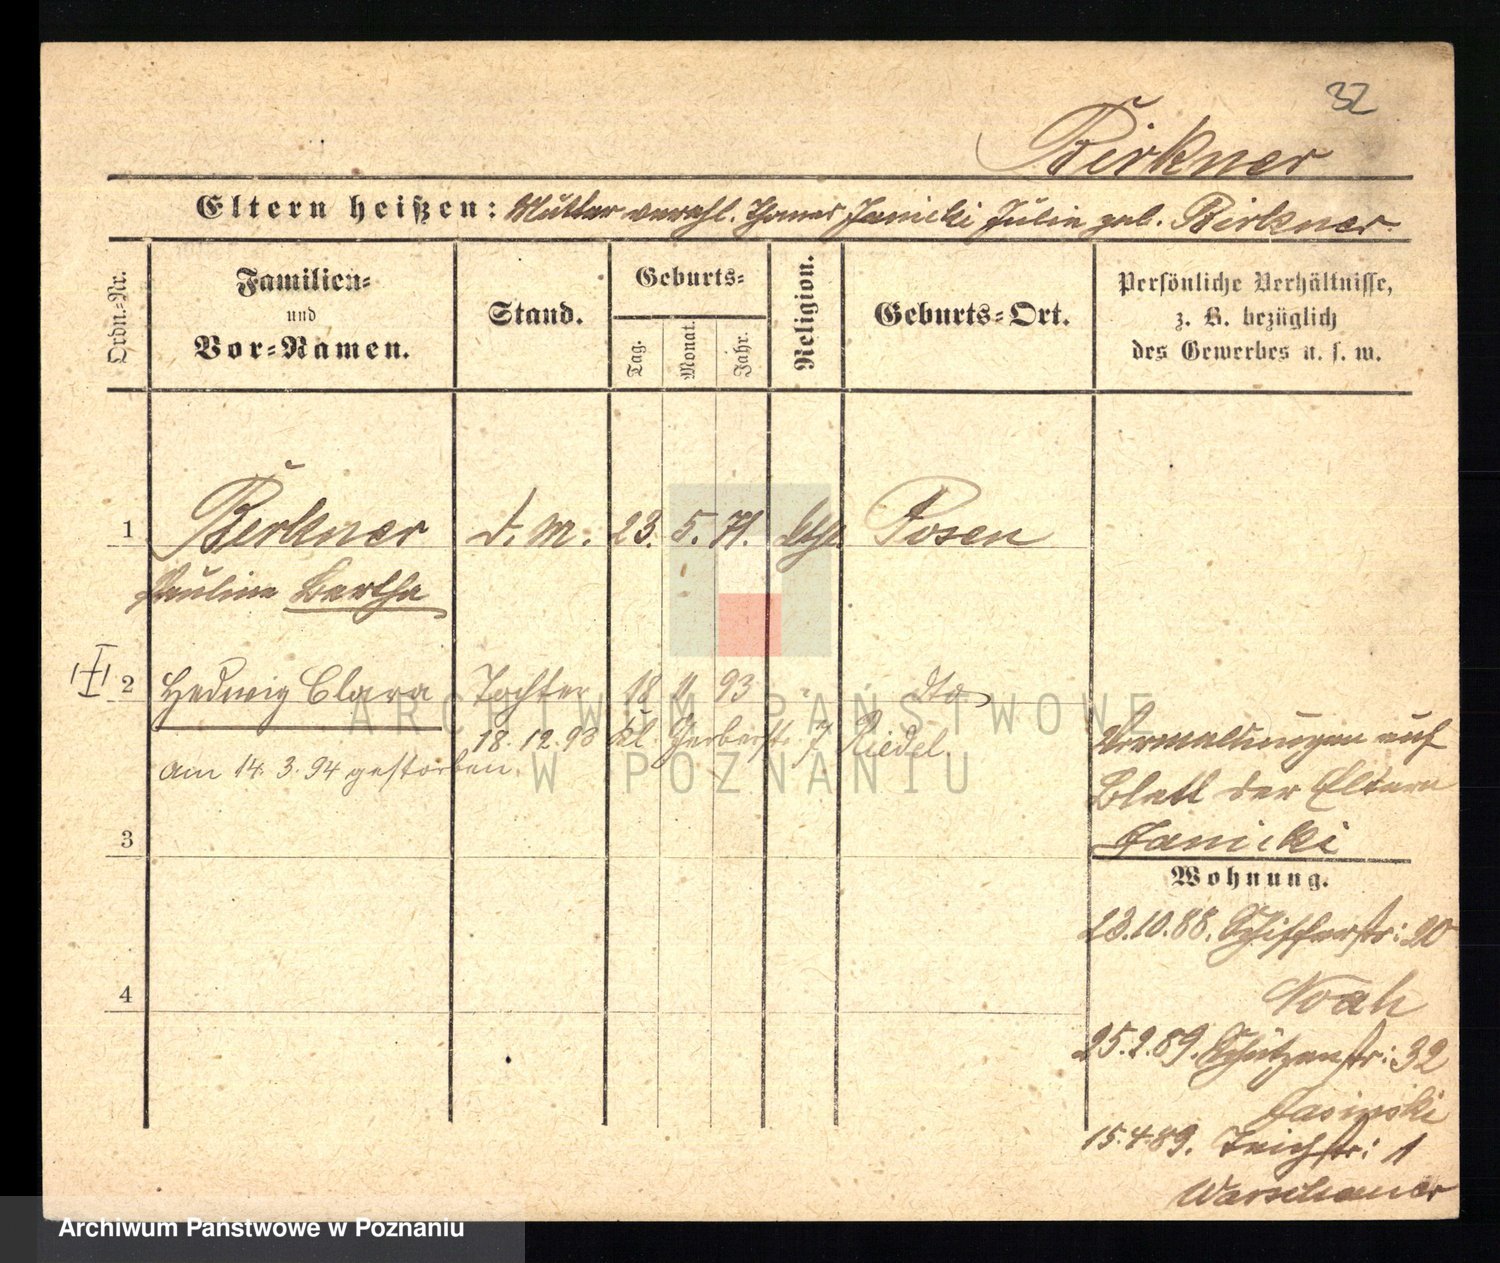 32
Birkner
Eltern heißen: Mutter verehl. Thomas Janicki Julie geb. Birkner
Ordn.-Nr.
Familien-
und
Vor-Namen.
Stand.
Geburts-
Tag.
Monat.
Jahr.
Religion.
Geburts-Ort.
Persönliche Verhältnisse,
z. B. bezüglich
des Gewerbes u. s. w.
1 Birkner d. M. 23. 5. 71. kth. Posen
Pauline Bertha
2 Hedwig Clara Tochter 18 11 93 " dto
18. 12. 93 kl. Gerberstr. 7 Riedel
am 14. 3. 94 gestorben.
3
4
Vormeldungen auf
Blatt der Eltern
Janicki
Wohnung.
23.10.88. Schifferstr: 20
Noah
25.2.89. Schützenstr: 32
Jasinski
15.4.89. Teichstr: 1
Warschauer
ARCHIWUM PAŃSTWOWE
W POZNANIU
Archiwum Państwowe w Poznaniu